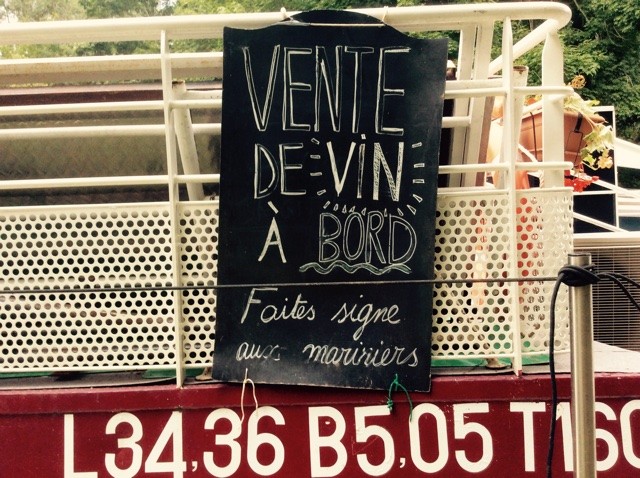 VENTE
DE VIN
À BORD
Faites signe
aux mariniers
L34,36 B5,05 T160